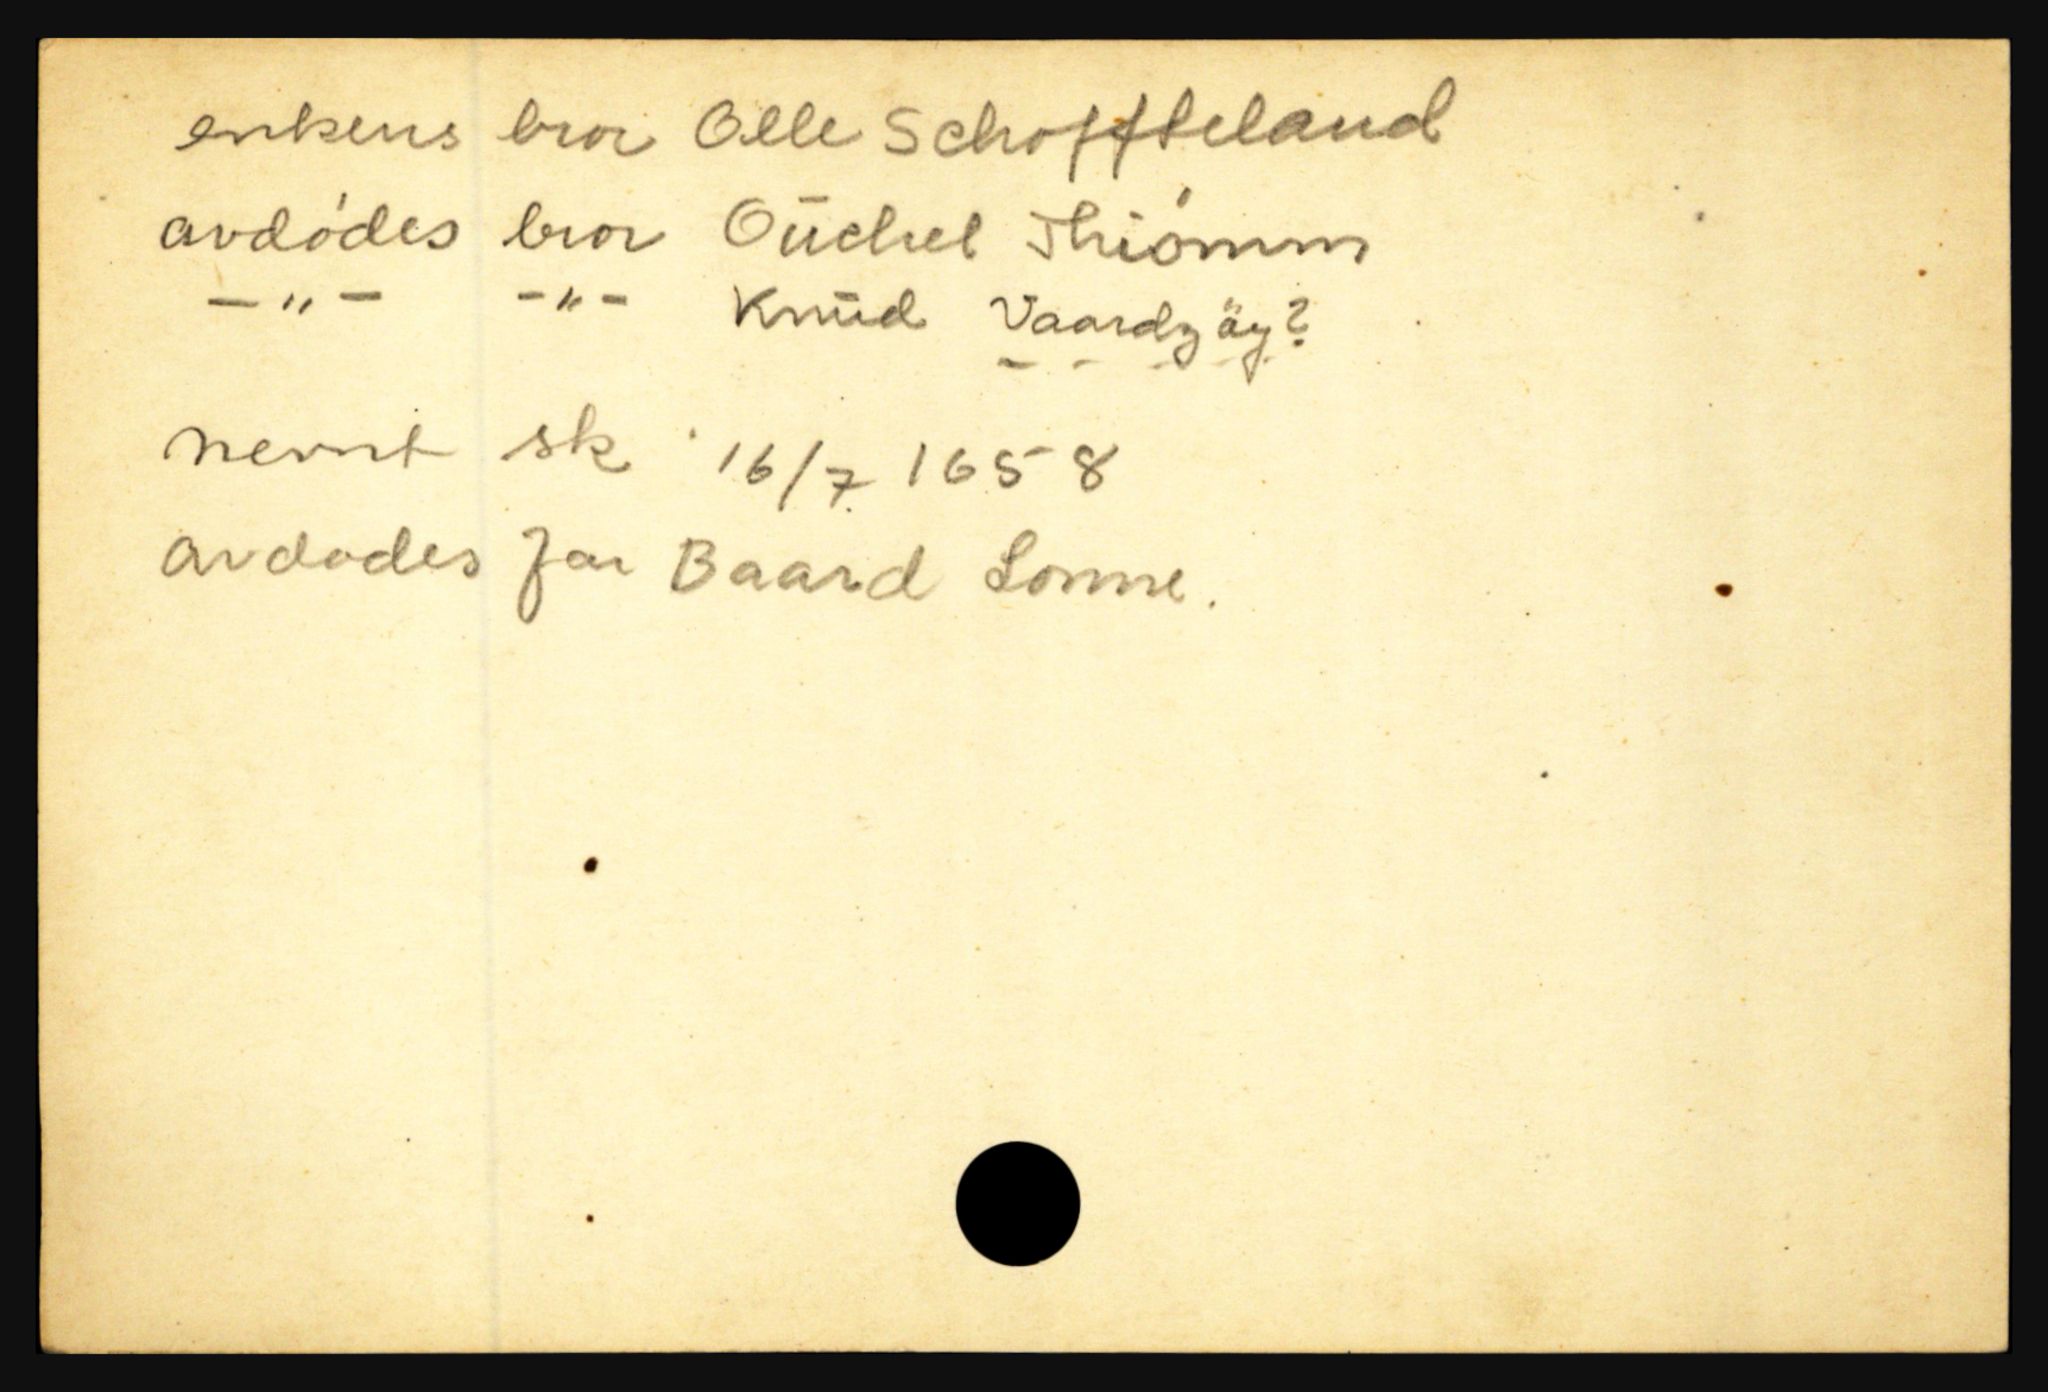 enkens bror Olle Schoffteland
avdódes bror Oūchel Thiómm
—〃— -〃- Knūd Vaardzäy?
nevnt sk 16/7 1658
avdodes far Baard Lonne.